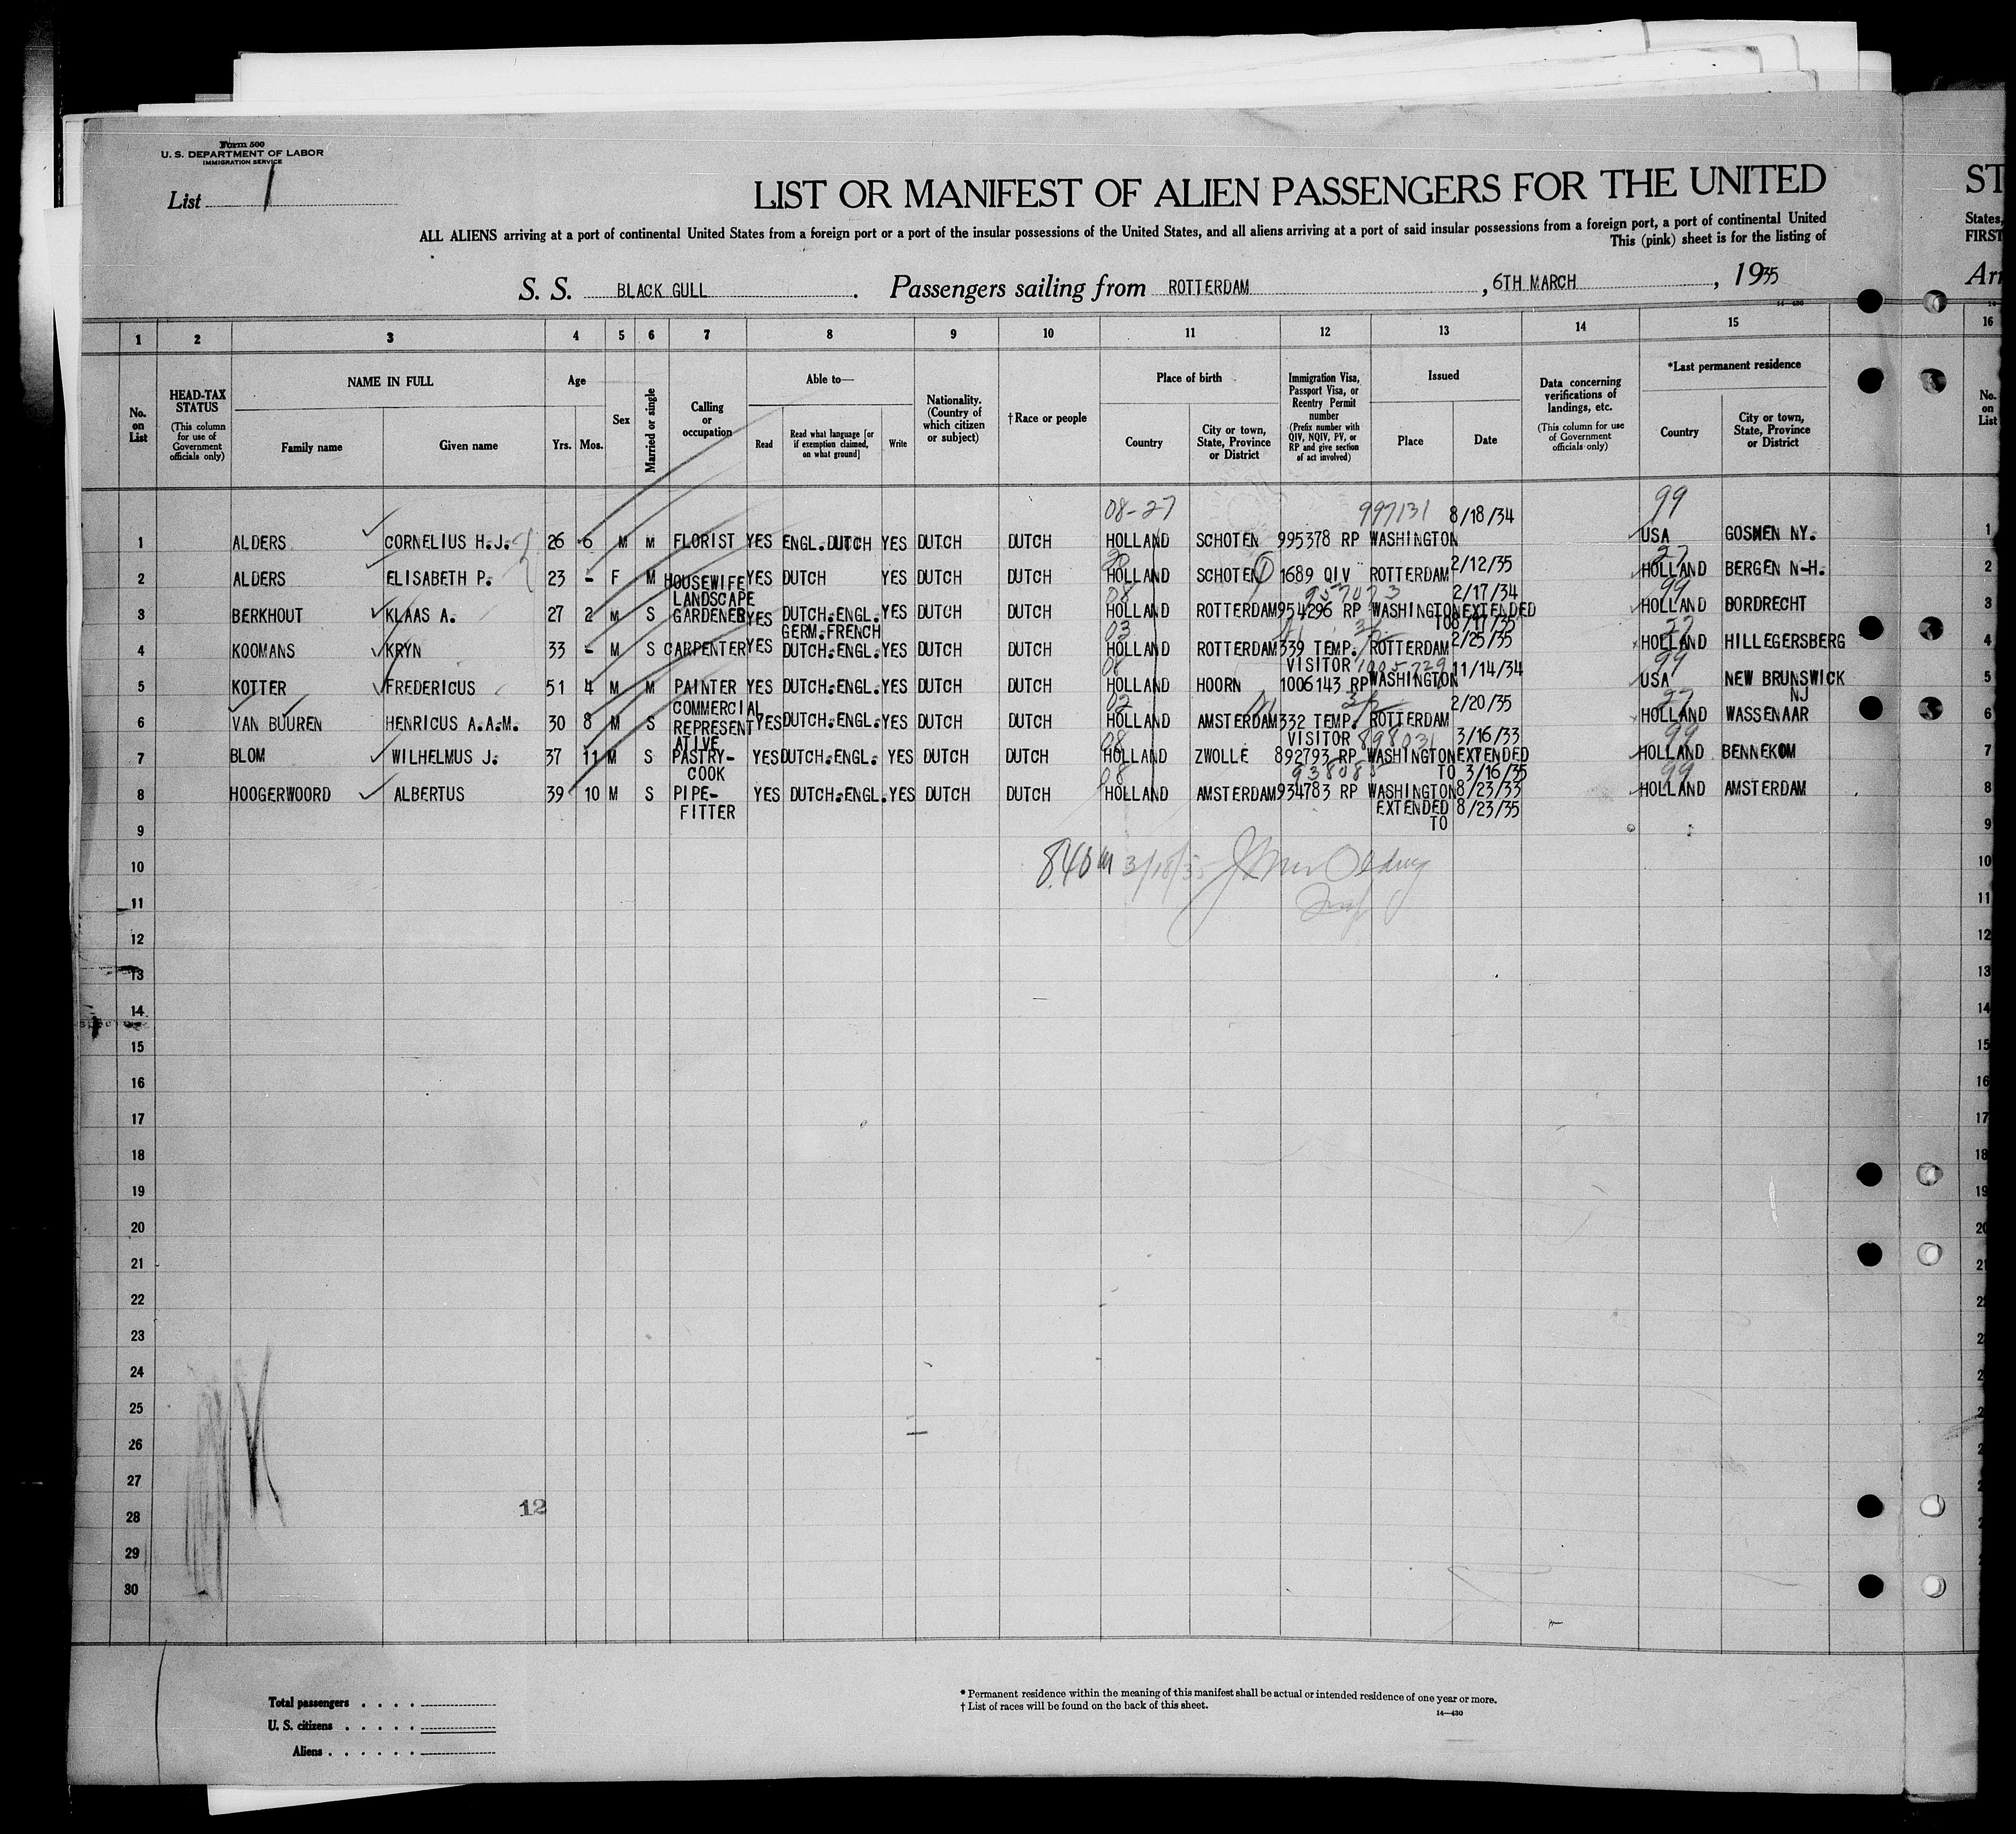 Form 500
U. S. DEPARTMENT OF LABOR
IMMIGRATION SERVICE
List 1
LIST OR MANIFEST OF ALIEN PASSENGERS FOR THE UNITED
ST
ALL ALIENS arriving at a port of continental United States from a foreign port or a port of the insular possessions of the United States, and all aliens arriving at a port of said insular possessions from a foreign port, a port of continental United
States,
This (pink) sheet is for the listing of
FIRST
S. S. BLACK GULL. Passengers sailing from ROTTERDAM, 6TH MARCH, 1935
Arr
14-430
1 2 3 4 5 6 7 8 9 10 11 12 13 14 15 16
No. on List
HEAD-TAX STATUS (This column for use of Government officials only)
NAME IN FULL
Family name Given name
Age
Yrs. Mos.
Sex
Married or single
Calling or occupation
Able to—
Read
Read what language [or if exemption claimed, on what ground]
Write
Nationality. (Country of which citizen or subject)
† Race or people
Place of birth
Country
City or town, State, Province or District
Immigration Visa, Passport Visa, or Reentry Permit number (Prefix number with QIV, NQIV, PV, or RP and give section of act involved)
Issued
Place Date
Data concerning verifications of landings, etc. (This column for use of Government officials only)
*Last permanent residence
Country
City or town, State, Province or District
No. on List
08-27 997131 8/18/34 99
1 ALDERS CORNELIUS H.J. 26 6 M M FLORIST YES ENGL.DUTCH YES DUTCH DUTCH HOLLAND SCHOTEN 995378 RP WASHINGTON USA GOSHEN NY. 1
2/12/35 27
2 ALDERS ELISABETH P. 23 - F M HOUSEWIFE YES DUTCH YES DUTCH DUTCH HOLLAND SCHOTEN 1 1689 QIV ROTTERDAM HOLLAND BERGEN N-H. 2
LANDSCAPE 08 2/17/34 99
3 BERKHOUT KLAAS A. 27 2 M S GARDENER YES DUTCH.ENGL. YES DUTCH DUTCH HOLLAND ROTTERDAM 954296 RP WASHINGTON EXTENDED HOLLAND DORDRECHT 3
GERM.FRENCH 03 TO 8/17/35 27
4 KOOMANS KRYN 33 - M S CARPENTER YES DUTCH.ENGL. YES DUTCH DUTCH HOLLAND ROTTERDAM 339 TEMP. ROTTERDAM 2/25/35 HOLLAND HILLEGERSBERG 4
08 VISITOR 11/14/34 99
5 KOTTER FREDERICUS 51 4 M M PAINTER YES DUTCH.ENGL. YES DUTCH DUTCH HOLLAND HOORN 1006143 RP WASHINGTON USA NEW BRUNSWICK 5
COMMERCIAL 2/20/35 27 NJ
6 VAN BUUREN HENRICUS A.A.M. 30 8 M S REPRESENT YES DUTCH.ENGL. YES DUTCH DUTCH HOLLAND AMSTERDAM 332 TEMP. ROTTERDAM HOLLAND WASSENAAR 6
ATIVE 08 VISITOR 898031 3/16/33 99
7 BLOM WILHELMUS J. 37 11 M S PASTRY- YES DUTCH.ENGL. YES DUTCH DUTCH HOLLAND ZWOLLE 892793 RP WASHINGTON EXTENDED HOLLAND BENNEKOM 7
COOK 08 TO 3/16/35 99
8 HOOGERWOORD ALBERTUS 39 10 M S PIPE- YES DUTCH.ENGL. YES DUTCH DUTCH HOLLAND AMSTERDAM 934783 RP WASHINGTON 8/23/33 HOLLAND AMSTERDAM 8
FITTER EXTENDED 8/23/35
TO
9 9
10 8.40 3/18/35 10
11 11
12 12
13 13
14 14
15 15
16 16
17 17
18 18
19 19
20 20
21 21
22
23
24
25
26
27
12
28
29
30
Total passengers
U. S. citizens
Aliens
* Permanent residence within the meaning of this manifest shall be actual or intended residence of one year or more.
† List of races will be found on the back of this sheet.
14—430